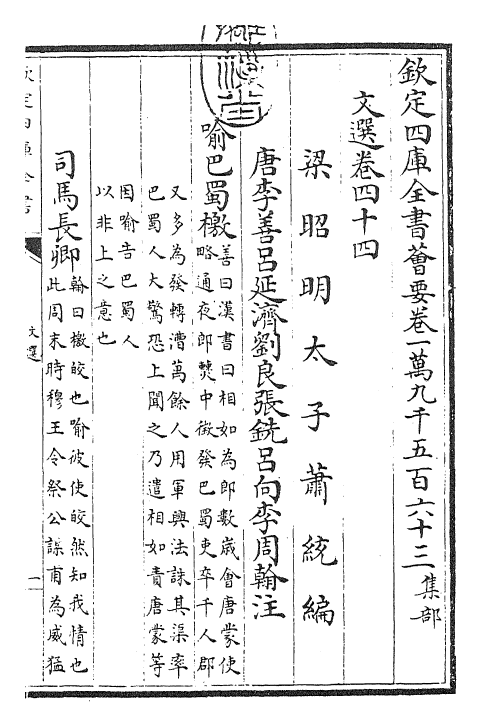 欽定四庫全書薈要卷一萬九千五百六十三 集部
文選卷四十四
梁昭明太子蕭統編
唐李善呂延濟劉良張銑呂向李周翰注
喻巴蜀檄 善曰漢書曰相如為郎數歲會唐蒙使
略通夜郎僰中徵發巴蜀吏卒千人郡
又多為發轉漕萬餘人用軍興法誅其渠率
巴蜀人大驚恐上聞之乃遣相如責唐蒙等
因喻告巴蜀人
以非上之意也
司馬長卿 翰曰檄皎也喻彼使皎然知我情也
此周末時穆王令祭公謀甫為威猛
欽定四庫全書
文選
一